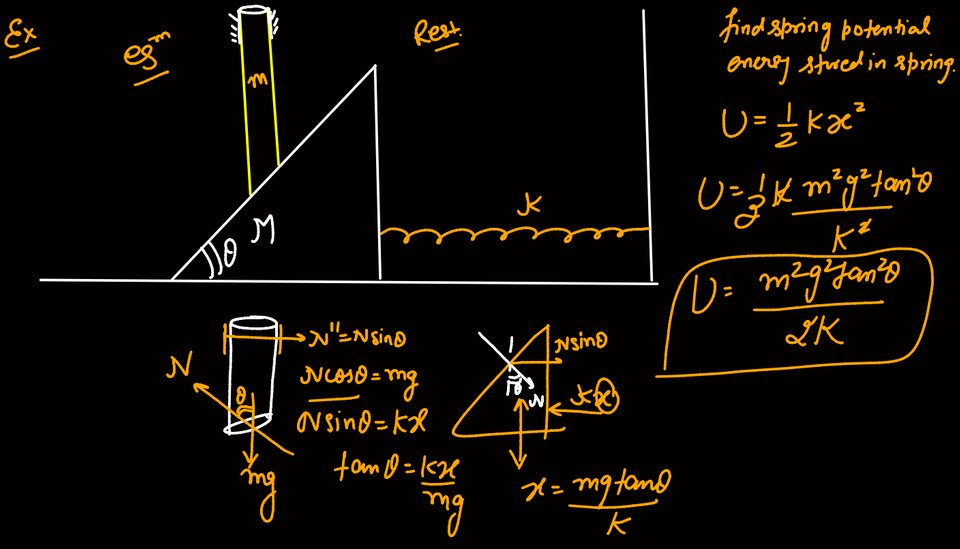 Ex
eqᵐ
m
Rest.
θ
M
K
find spring potential
energy stored in spring.
U = 1/2 Kx²
U = 1/2 K m²g²tan²θ/K²
U = m²g²tan²θ/2K
N
θ
mg
N'' = Nsinθ
Ncosθ = mg
Nsinθ = Kx
tanθ = Kx/mg
Nsinθ
θ
N
K(x)
x = mgtanθ/K